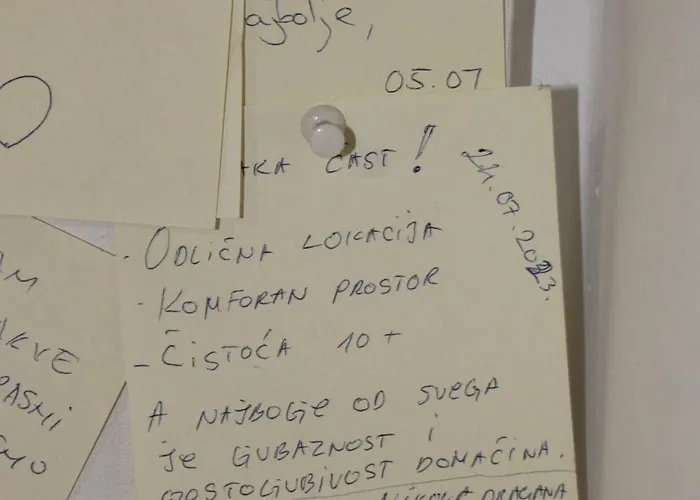 ajbolje,
05.07
ČAST!
21.07.2023.
- ODLIČNA LOKACIJA
- KOMFORAN PROSTOR
- ČISTOĆA 10+
A NAJBOLJE OD SVEGA
JE LJUBAZNOST I
GOSTOLJUBIVOST DOMAĆINA.
NIKOLA DRAGANA